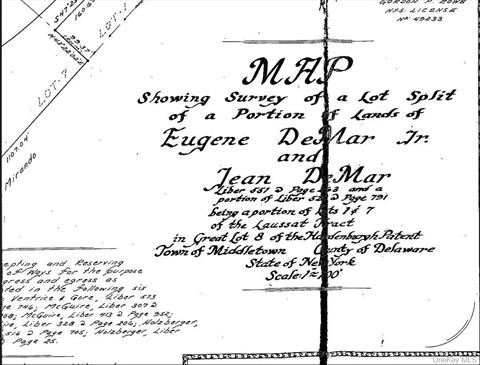 GORDON P. ROWE
N.Y.S. LICENSE
Nº 49233
LOT 1
547.25
160.6
99.37
LOT 7
1107.04'
Mirando
MAP
Showing Survey of a Lot Split
of a Portion of Lands of
Eugene DeMar Jr.
and
Jean DeMar
Liber 551 @ Page and a
portion of Liber @ Page 791
being a portion of Lots 1 & 7
of the Laussat Tract
in Great Lot 8 of the Hardenburgh Patent
Town of Middletown County of Delaware
State of New York
Scale: 1"=100'
epting and Reserving
of Ways for the purpose
gress and egress as
ted in the following six
Ventrice & Gore, Liber 573
ge 746; McGuire, Liber 307 @
08; McGuire, Liber 413 @ Page 952;
ire, Liber 328 @ Page 206; Holzberger,
516 @ Page 705; Holzberger, Liber
@ Page 25.
OneKey MLS